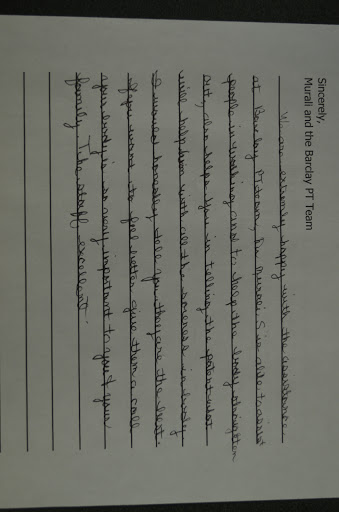 Sincerely,
Murali and the Barclay PT Team
We are extremly happy with the assistance
at Barclay PT team, Dr Murali S is able to assist
people in working and to help the body strengthen
will help him with all the soreness in body
I would honestly tell you they are the best.
If you want to feel better give them a call
your body is so very important to you & your
family. The staff excellent.